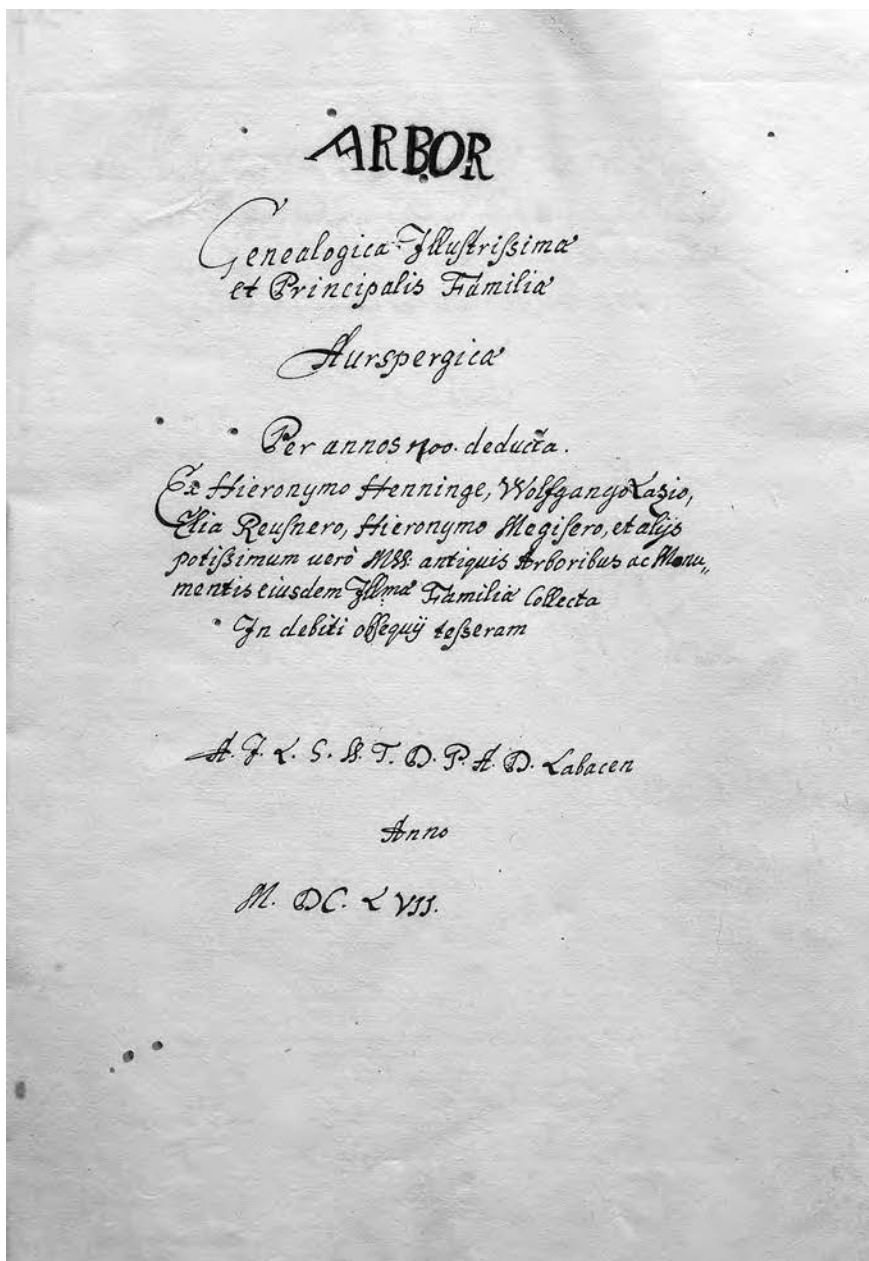 ARBOR
Genealogica Illustrissimæ
et Principalis Familiæ
Aurspergicæ
Per annos 700. deducta.
Ex Hieronymo Henninge, Wolfgango Lazio,
Elia Reusnero, Hieronymo Megisero, et alijs
potissimum uerò MSS. antiquis Arboribus ac Monu„
mentis eiusdem Illmæ Familiæ Collecta
In debiti obsequij tesseram
A. J. L. S. W. T. D. P. A. D. Labacen
Anno
M. DC. LVII.